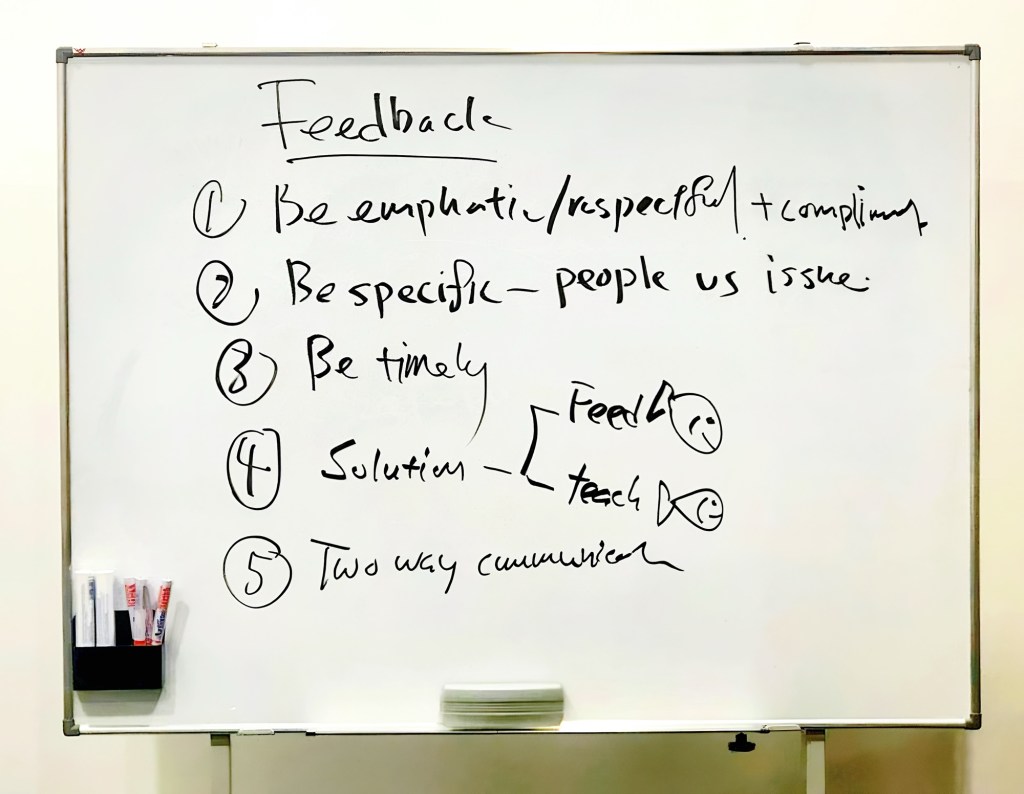 Feedback
① Be emphatic/respectful + compliment
② Be specific - people vs issue.
③ Be timely
④ Solution - Feed
teach
⑤ Two way communicat